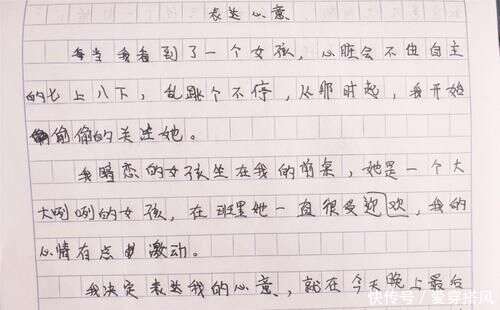 表达心意
每当我看到了一个女孩，心脏会不由自主
的七上八下，乱跳个不停，从那时起，我开始
偷偷的关注她。
我暗恋的女孩坐在我的前桌，她是一个大
大咧咧的女孩，在班里她一直很受迎欢，我的
心情有点激动。
我决定表达我的心意，就在今天晚上最后
快传号/萝芽搭风